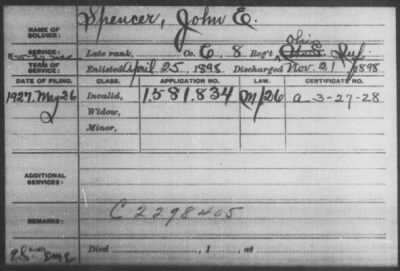 NAME OF SOLDIER: Spencer, John E.
Ohio
SERVICE: Late rank, Co. C, 8 Reg't Inf.
TERM OF SERVICE: Enlisted April 25, 1898 Discharged Nov. 21, 1898
DATE OF FILING. CLASS. APPLICATION NO. LAW. CERTIFICATE NO.
1927. May 26 Invalid, 1.581.834 M/26 a-3-27-28
Widow,
Minor,
ADDITIONAL SERVICES:
REMARKS: C 2298405
Died , 1 , at